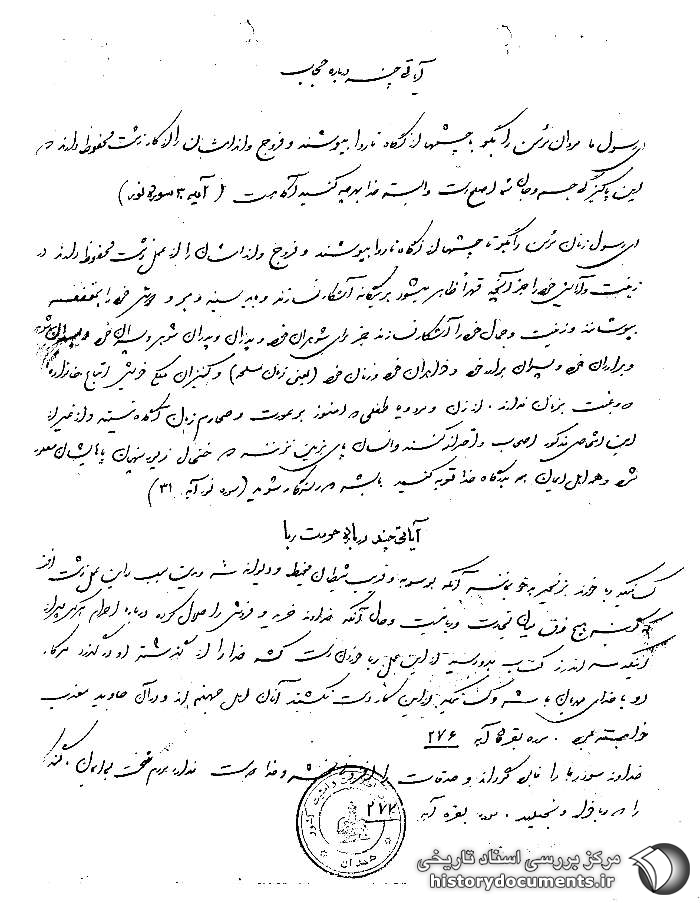 آیاتی چند درباره حجاب
ای رسول ما مردان مؤمن را بگو تا چشمها از نگاه ناروا بپوشند و فروج و اندامشان را از کار زشت محفوظ دارند که
این پاکیزگی جسم و جان شما اصلح است و البته خدا بهرچه کنید آگاه است (آیه ۳۰ سوره نور)
ای رسول زنان مؤمن را بگو تا چشمها از نگاه ناروا بپوشند و فروج و اندامشان را از عمل زشت محفوظ دارند و
زینت و آرایش خود را جز آنچه قهراً ظاهر میشود بر بیگانه آشکار نسازند و باید سینه و بر و دوش خود را بمقنعه
بپوشانند و زینت و جمال خود را آشکار نسازند جز برای شوهران خود و پدران و پدران شوهر و پسران خود و پسران شوهر
و برادران خود و پسران برادر خود و خواهران خود و زنان خود (یعنی زنان مسلمه) و کنیزان ملکی خویش و اتباع خانواده
که رغبت بزنان ندارند از زن و مرد و یا طفلی که هنوز بر عورت و محارم زنان آگاه نیستند و از غیر این
این اشخاص مذکور احتجاب و احتراز کنند و آنسان پای بزمین نزنند که خلخال و زیور پنهان پاهایشان معلوم
شود و همه اهل ایمان به درگاه خدا توبه کنید باشد که رستگار شوید (سوره نور آیه ۳۱)
آیاتی چند درباره حرمت ربا
کسانیکه ربا خورند بر نخیزند جز مانند آنکه بوسوسه و فریب شیطان مخبط و دیوانه شده و بدین سبب در این عمل زشت افتند
که گویند هیچ فرق میان تجارت و ربا نیست و حال آنکه خداوند خرید و فروش را حلال کرده و ربا را حرام هر کس پس از
آنکه پند و اندرز کتاب خدا بدو رسید از این عمل ربا خوردن دست کشد خدا از گذشته او درگذرد و کار
او با خدای مهربان باشد و کسانیکه از این کار دست نکشند آنان اهل جهنم اند و در آن جاوید معذب
خواهند بود. سوره بقره آیه ۲۷۶
خداوند سود ربا را نابود گرداند و صدقات را افزونی بخشد و خدا دوست ندارد مردم سخت بی ایمان گنه
را. سوره بقره آیه ۲۷۷
همدان
مرکز بررسی اسناد تاریخی
historydocuments.ir